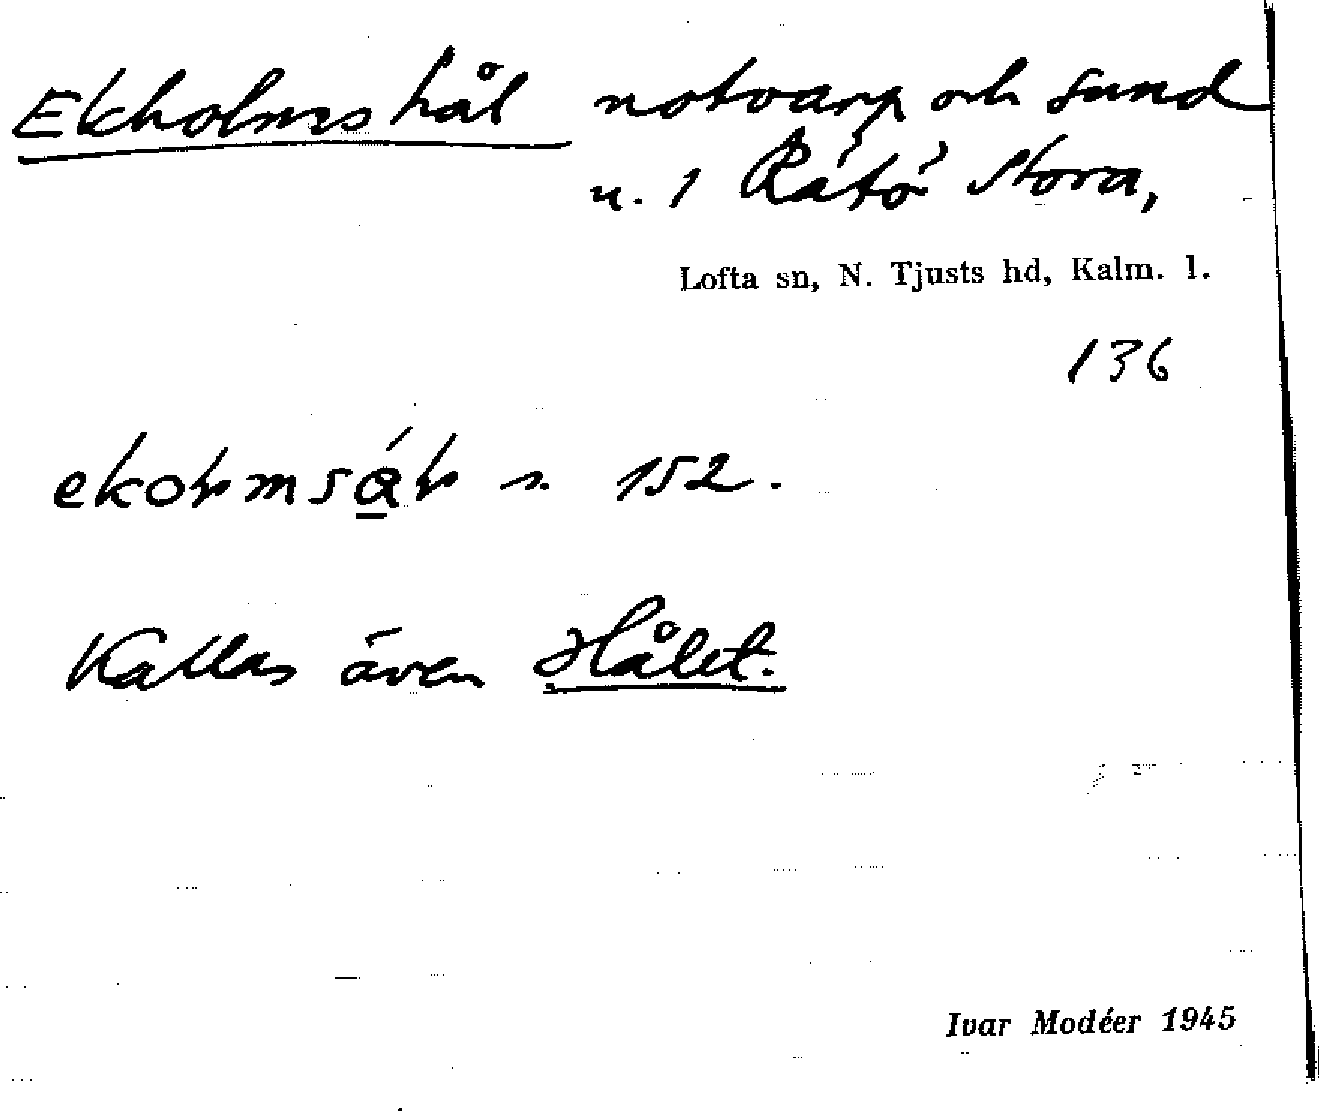 Ekholmshål notvarp och sund
u. 1 Råtö Stora,
Lofta sn, N. Tjusts hd, Kalm. l.
136
s. 152.
Kallas även Hålet.
Ivar Modéer 1945